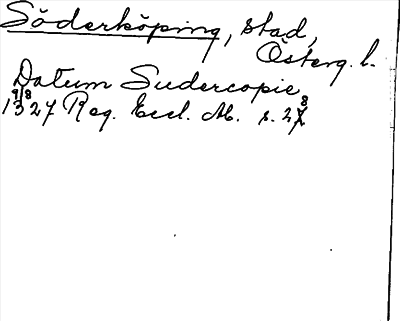 Söderköping, stad,
Österg. l.
Datum Sudercopie
9/8 1327 Reg. Eccl. M. s. 278